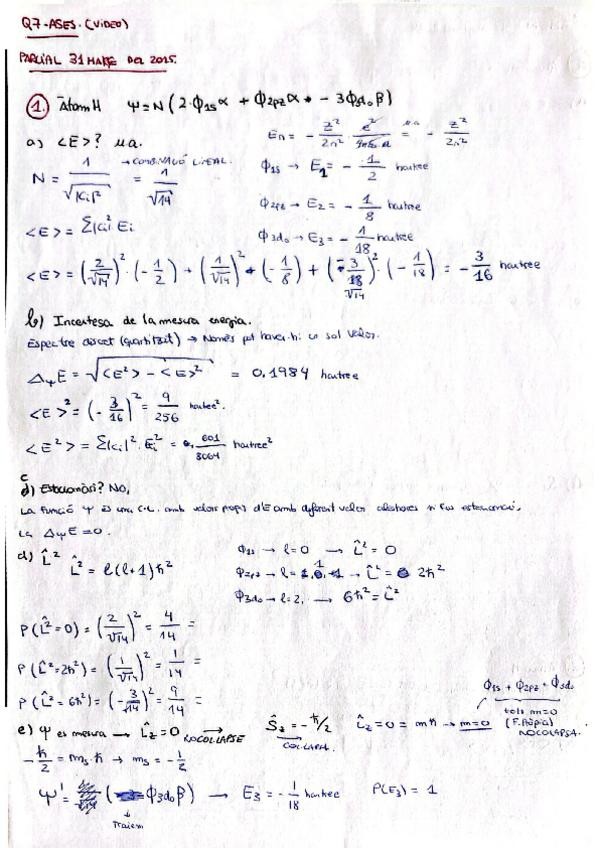 Q7-ASES. (VIDEO)
PARCIAL 31 MARÇ DEL 2015.
1. Àtom H Ψ = N (2·Φ1s α + Φ2pz α + - 3Φ3d0 β)
a) <E>? u.a. En = - Z²/2n² · e²/4πε0 a = u.a - Z²/2n²
N = 1/√|Ci|² → COMBINACIÓ LINEAL. = 1/√14
Φ1s → E1 = - 1/2 hartree
<E> = Σ|Ci|² Ei
Φ2pz → E2 = - 1/8 hartree
Φ3d0 → E3 = - 1/18 hartree
<E> = (2/√14)² · (- 1/2) + (1/√14)² · (- 1/8) + (- 3/√14)² · (- 1/18) = - 3/16 hartree
b) Incertesa de la mesura energia.
Espectre discret (quantitzat) → Només pot haver-hi un sol valor.
ΔψE = √<E²> - <E>² = 0,1984 hartree
<E>² = (- 3/16)² = 9/256 hartree².
<E²> = Σ|Ci|² · Ei² = 601/8064 hartree²
c) Estacionari? No,
La funció Ψ és una C.L. amb valors propis d'E amb diferent valor. aleshores si fos estacionari,
la ΔψE = 0.
d) L̂² L̂² = l(l+1)ħ²
Φ1s → l=0 → L̂² = 0
Φ2pz → l=1 → L̂² = 2ħ²
Φ3d0 → l=2, → 6ħ² = L̂²
P(L̂²=0) = (2/√14)² = 4/14 =
P(L̂²=2ħ²) = (1/√14)² = 1/14 =
P(L̂²=6ħ²) = (- 3/√14)² = 9/14 =
Φ1s + Φ2pz + Φ3d0
tots m=0
(F. Pròpia)
NO COLAPSA.
e) Ψ es mesura → L̂z = 0 NO COL·LAPSE Ŝz = - ħ/2 COL·LAPSA. L̂z = 0 = mħ → m=0
- ħ/2 = ms · ħ → ms = - 1/2
Ψ' = (Φ3d0 β) → E3 = - 1/18 hartree P(E3) = 1
Traiem